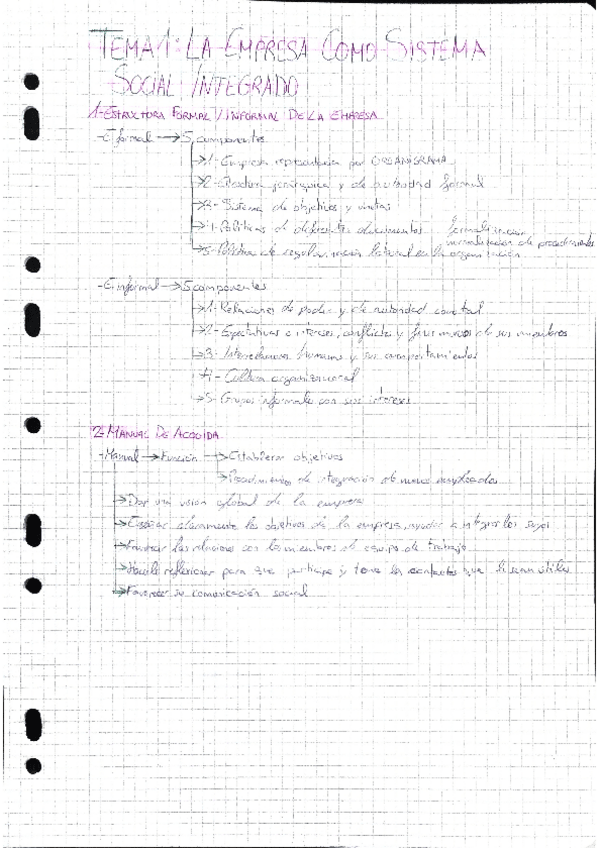 TEMA 1: LA EMPRESA COMO SISTEMA
SOCIAL INTEGRADO
1-ESTRUCTURA FORMAL / INFORMAL DE LA EMPRESA
-E. formal → 5 componentes
→1- Empresa representada por ORGANIGRAMA
→2- Estructura jerárquica y de autoridad formal
→3- Sistema de objetivos y metas
→4- Políticas de diferentes documentos formalización
normalización de procedimientos
→5- Política de regular en la organización
-E informal → 5 componentes
→1- Relaciones de poder y de autoridad
→2- Expectativas e intereses, conflictos y de sus miembros
→3- Interacciones humanas y sus comportamientos
→4- Cultura organizacional
→5- Grupos informales con sus intereses
2-MANUAL DE ACOGIDA
-Manual → Función → Establecer objetivos
→Procedimientos de integración de nuevos empleados
→Dar una visión global de la empresa
→ claramente los objetivos de la empresa, ayudar a integrar los suyos
→Favorecer las relaciones con los miembros de equipo de trabajo
→Hacerle reflexionar para que participe y tome los contactos que le sean útiles
→Favorecer su comunicación social